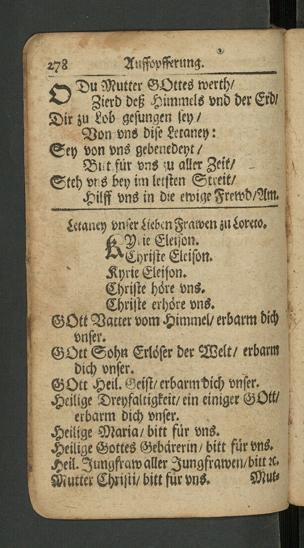 278 Auffopfferung.
O Du Mutter GOttes werth/
Zierd deß Himmels vnd der Erd/
Dir zu Lob gesungen sey/
Von vns dise Letaney:
Sey von vns gebenedeyt/
Bitt für vns zu aller Zeit/
Steh vns bey im letsten Streit/
Hilff vns in die ewige Frewd/Am.
Letaney vnser Lieben Frawen zu Loreto.
KYrie Eleison.
Christe Eleison.
Kyrie Eleison.
Christe höre vns.
Christe erhöre vns.
GOtt Vatter vom Himmel/ erbarm dich
vnser.
GOtt Sohn Erlöser der Welt/ erbarm
dich vnser.
GOtt Heil. Geist/ erbarm dich vnser.
Heilige Dreyfaltigkeit/ ein einiger GOtt/
erbarm dich vnser.
Heilige Maria/ bitt für vns.
Heilige Gottes Gebärerin/ bitt für vns.
Heil. Jungfraw aller Jungfrawen/ bitt ꝛc.
Mutter Christi/ bitt für vns. Mut-